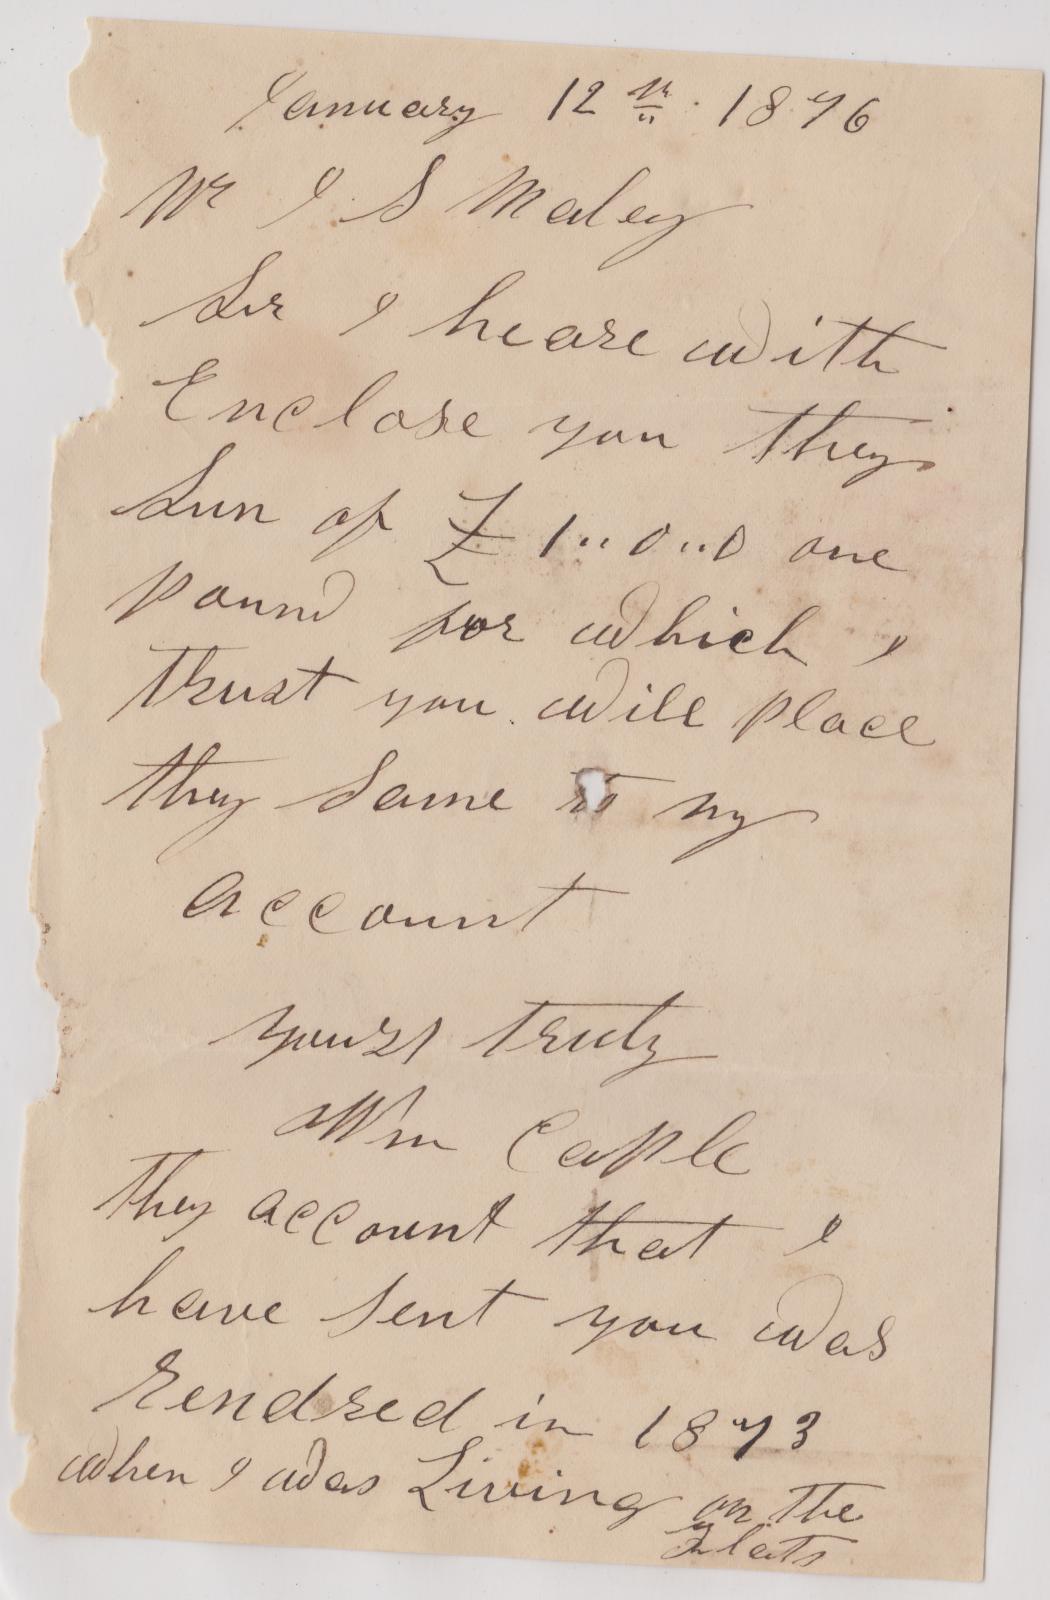 January 12th 1876
Mr J S Maley
Sir I heare with
Enclose you they
Sun of £ 1"0"0 one
pound for which I
trust you will place
they same to my
account
yours truly
Wm Caple
they account that I
have sent you was
rendred in 1873
when I was Living on the
Flats